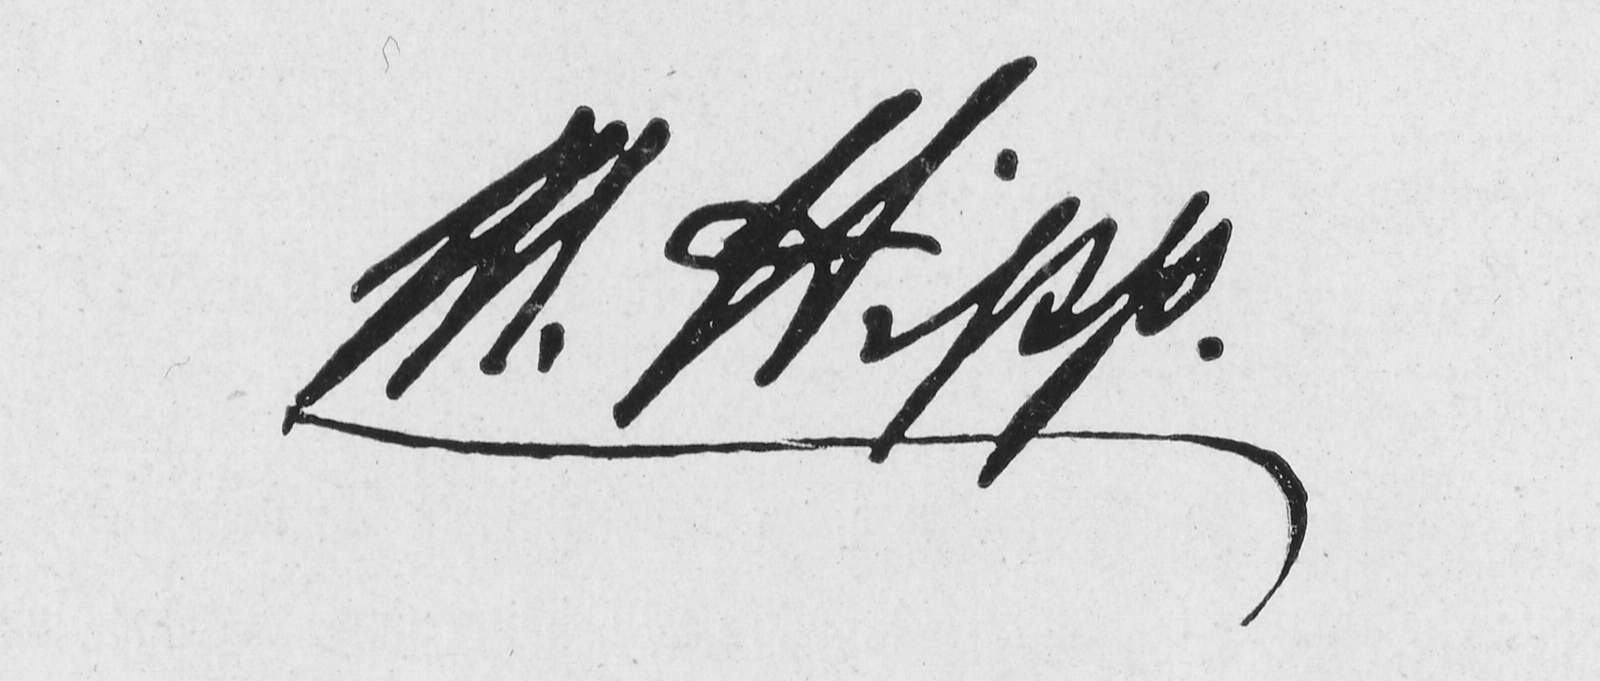 M. Hipp.